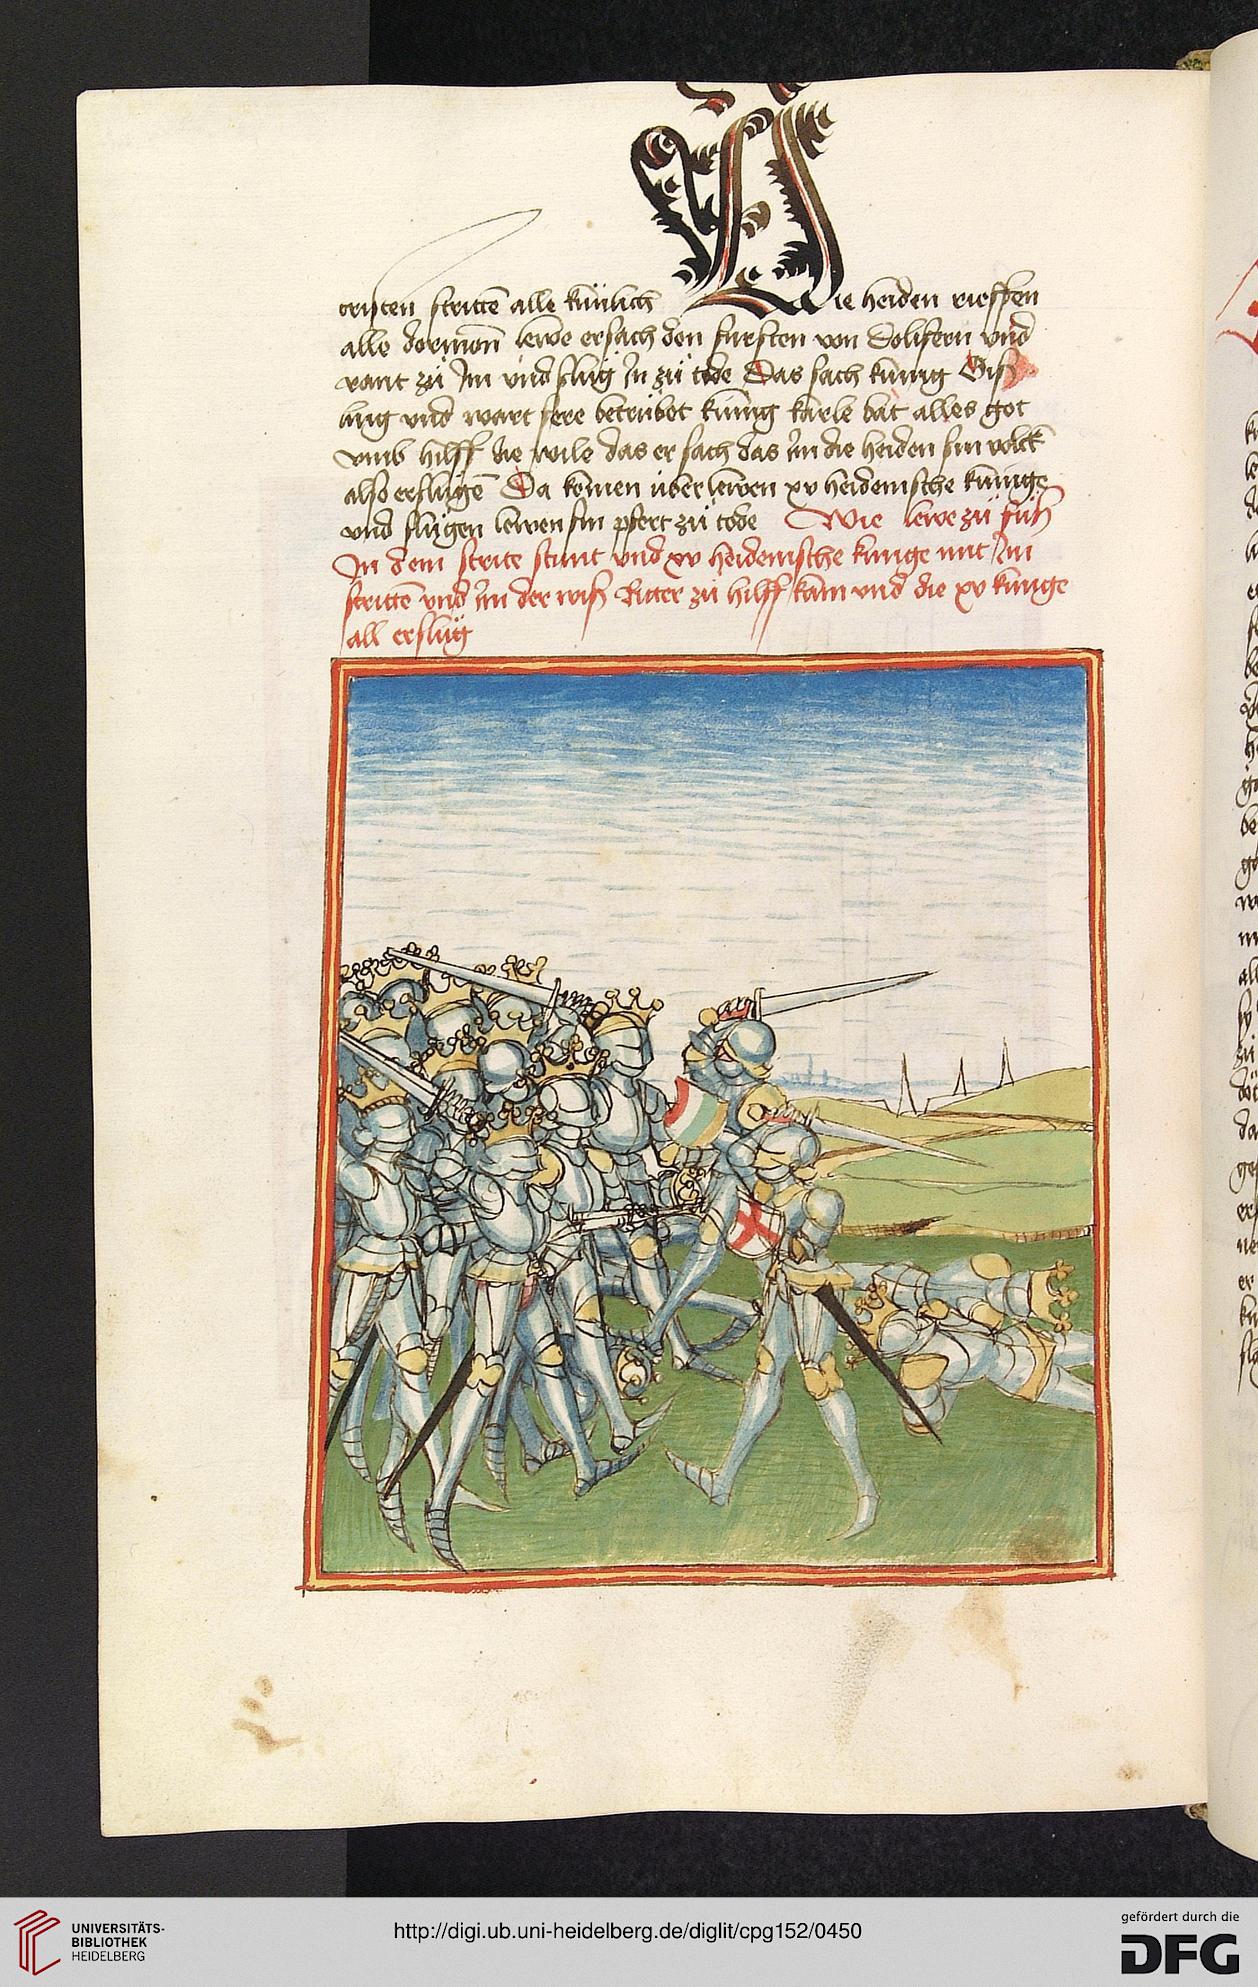 cristen stritten alle künlich Die heiden rieffen
alle dormon lewe ersach den fursten von Dolifern und
rant zü Im und slüg In zü tode Das sach künig Gis
ling und wart sere betrübet künig karle bat alles got
umb hilff die wile das er sach das Im die heiden sin volck
also erslügen Da komen über lewen xv heidensche künige
und slügen lewen sin pfert zü tode Wie lewe zü füß
In dem strite stunt und xv heidensche kunge mit Im
stritten und Im der wiß Ritter zü hilff kam und die xv kunge
all erslüg
UNIVERSITÄTS-
BIBLIOTHEK
HEIDELBERG
http://digi.ub.uni-heidelberg.de/diglit/cpg152/0450
gefördert durch die
DFG